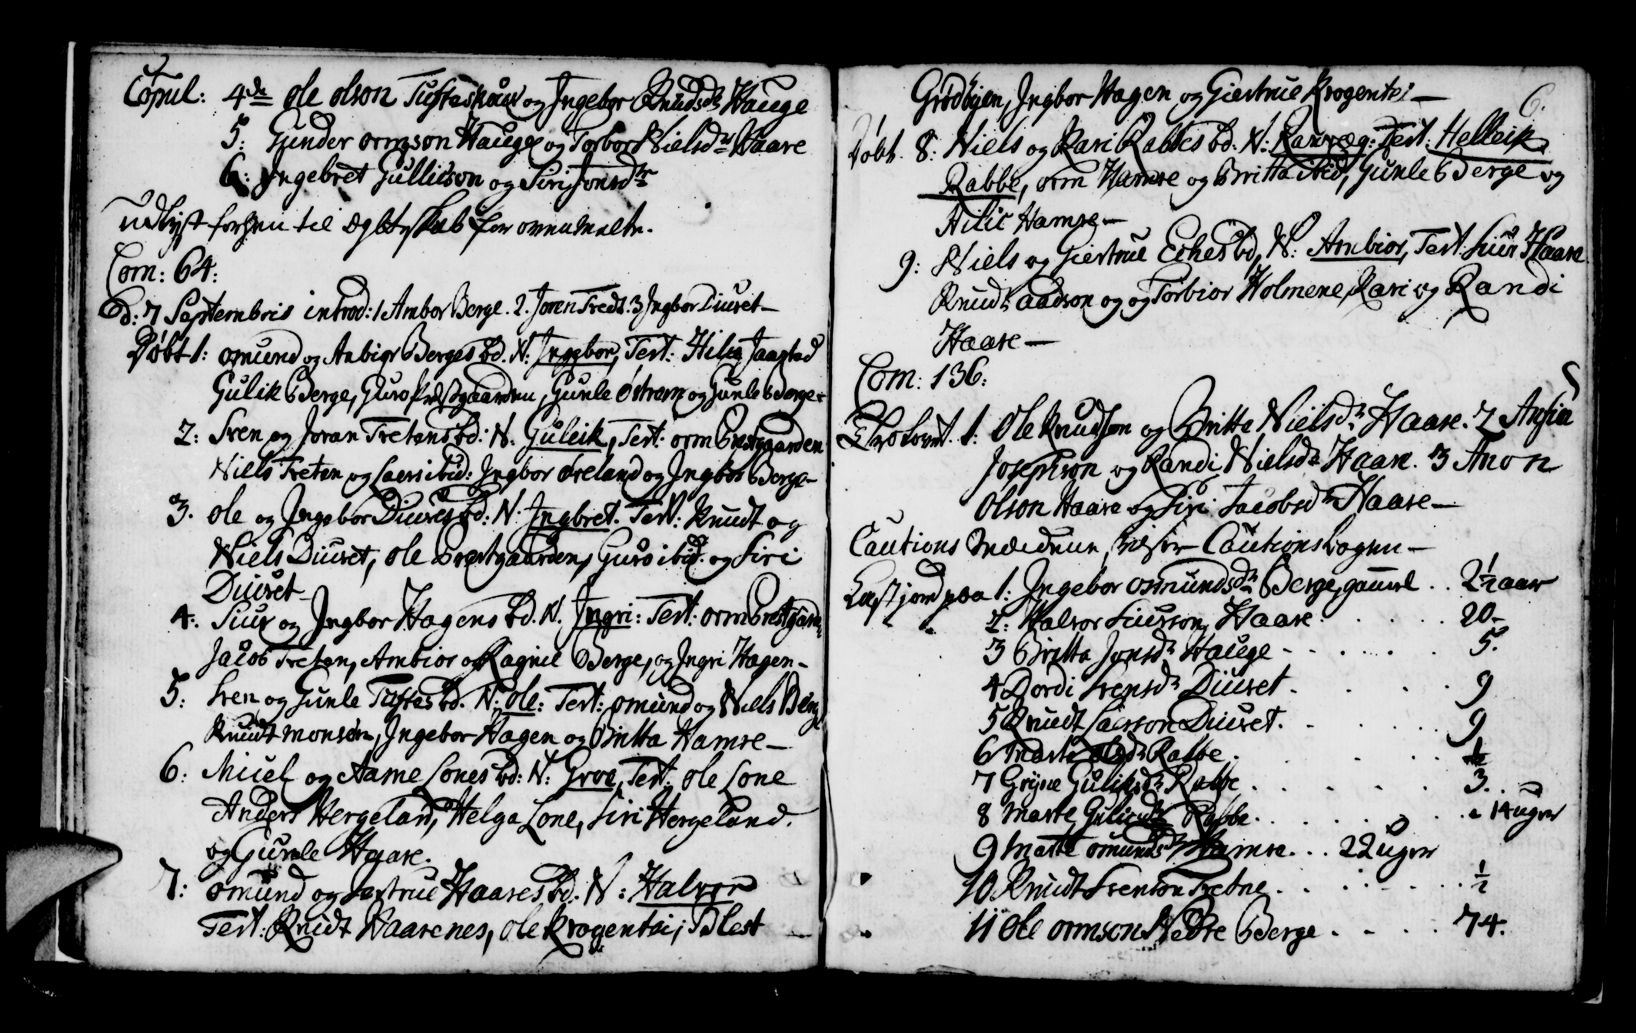 Copul: 4de Ole Olson Tufteskouv og Ingebor Knudsdr Hauge
5: Gunder Ormson Hauge og Torbor Nielsdr Haare
6: Ingebret Gullicson og Siri Jonsdr
til Ægteskab for omemeltr.
Com: 64:
D: 7 Septembris introd: 1 Ambor Berge. 2. Joren Tredt: 3 Ingbor Diuret
Døbt 1: Omund og Anbior Berges bd. N: Ingebor, Test: Hilis Jaastad
Gulik Berge, Guro Præstgaarden, Gunle Østrem og Gunle Berge
2: Sven og Joran Tretens bd: N: Guleik, Test: Orm Præstgaarden
Niels Treten og Laers ibid: Ingbor Øreland og Ingbor Berge
3. Ole og Ingebor Diurets bd: N: Ingbret. Test: Knudt og
Niels Diuret, Ole Præstgaarden, Guro ibid. og Siri
Diuret
4: Siur og Ingbor Hagens bd. N. Ingri: Test: Orm Prestgard.
Jacob Treten, Ambior og Ragnil Berge, og Ingri Hagen
5: Sven og Gunle Tuftes bd. N: Ole: Test: Omund og Niels Berg
Knudt Monsøn, Ingebor Hagen og Britta Hamre
6: Micel og Aame Lones bd: N: Groe, Test: Ole Lone
Anders Hergeland, Helga Lone, Siri Hergeland.
og Gunle Haare.
7: Omund og Iertrue Haares bd: N: Halvor
Test: Knudt Haarenes, Ole Krogentei, Blest
6.
Grødbyen, Ingbor Hagen og Giertrue Krogentei
Døbt. 8: Niels og Kari Rabbes bd. N: Ranvæg: Test: Helleik
Rabbe, Orm Hamre og Britta ibid, Gunle Berge og
Hilic Hamre
9: Niels og Giertrue Eches bd, N: Ambior, Test: Siur Haare
Knudt Aadson og og Torbior Holmene, Kari og Randi
Haare
Com: 136:
1: Ole Knudson og Britta Nielsdr Haare. 2 Ansin
Josephson og Randi Nielsdr Haare. 3 Anon
Olson Haare og Siri Jacobsdr Haare
Cautions Cautionsbogen
Kast jord paa 1: Ingebor Osmundsdr Berge, gammel . . 2½ aar
2: Halvor Siurson, Haare . . . . . 20
3 Britta Jonsdr Hauge . . . . . . 5.
4 Dordi Svensdr Diuret . . . . 9
5 Knudt Laerson Diuret. . . . . 9
6 Marte Rabbe . . . . . ½
7 Grijne Guliksdr Rabbe . . . . . . 3.
8 Marte Gulicsdr Rabbe . . . . . . 14 uger
9 Marte Omundsdr Hamre . . . 22 uger
10. Knudt Svenson Tretne . . . . . . ½
11 Ole Ormson Nedre Berge . . . . 74.